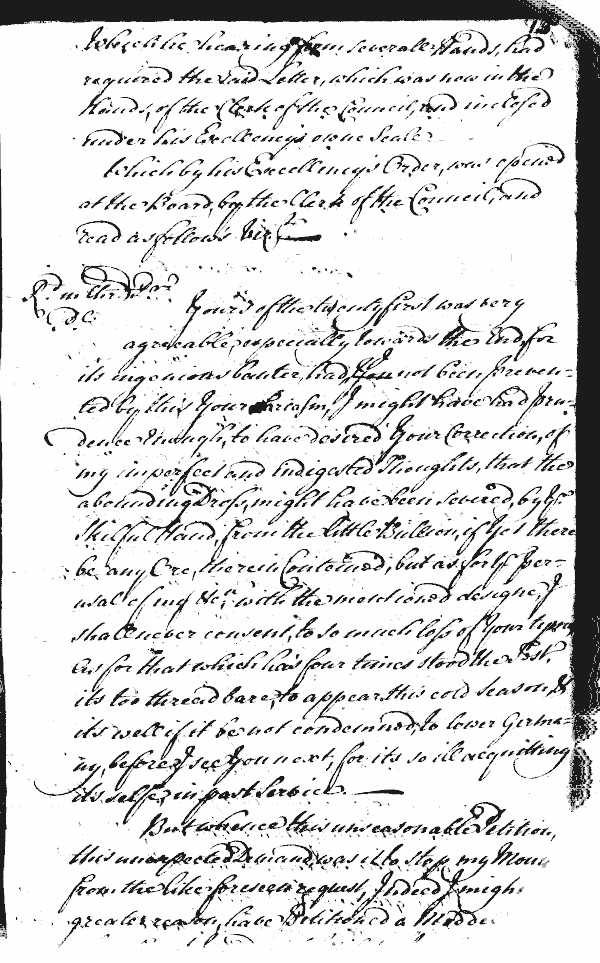 Which he hearing from severall Hands, had
required the said Letter, which was now in the
Hands, of the Clerk of the Council, and inclosed
under his Excellency's owne Seale
Which by his Excellency's Order, was opened
at the Board, by the Clerk of the Council, and
read as follows viz:t
Yours of the twenty first was very
agreeable, especially towards the End, for
its ingenious banter, had You not been preven-
ted by this Your I might have had pru-
dence Enough, to have desired Your Correction, of
my imperfect and indigested Thoughts, that the
abounding Dross, might have been severed, by Yr.
Skilful Hand, from the little Bullion, if Yet there
be any Ore, therein Contained, but as for Yr per-
usal of my with the mentioned designe, I
shall never consent, to so much loss of Your
As for that which has four times stood the Test,
its too thread bare, to appear this cold season, &
its well if it be not condemned, to lower Germa-
ny, before I see You next, for its so ill acquitting
its selfe, in past Service
But whence this unseasonable Petition,
this unexpected Demand, was it to stop my
from the like foreseen request, Indeed I might
greater reason, have Petitioned a